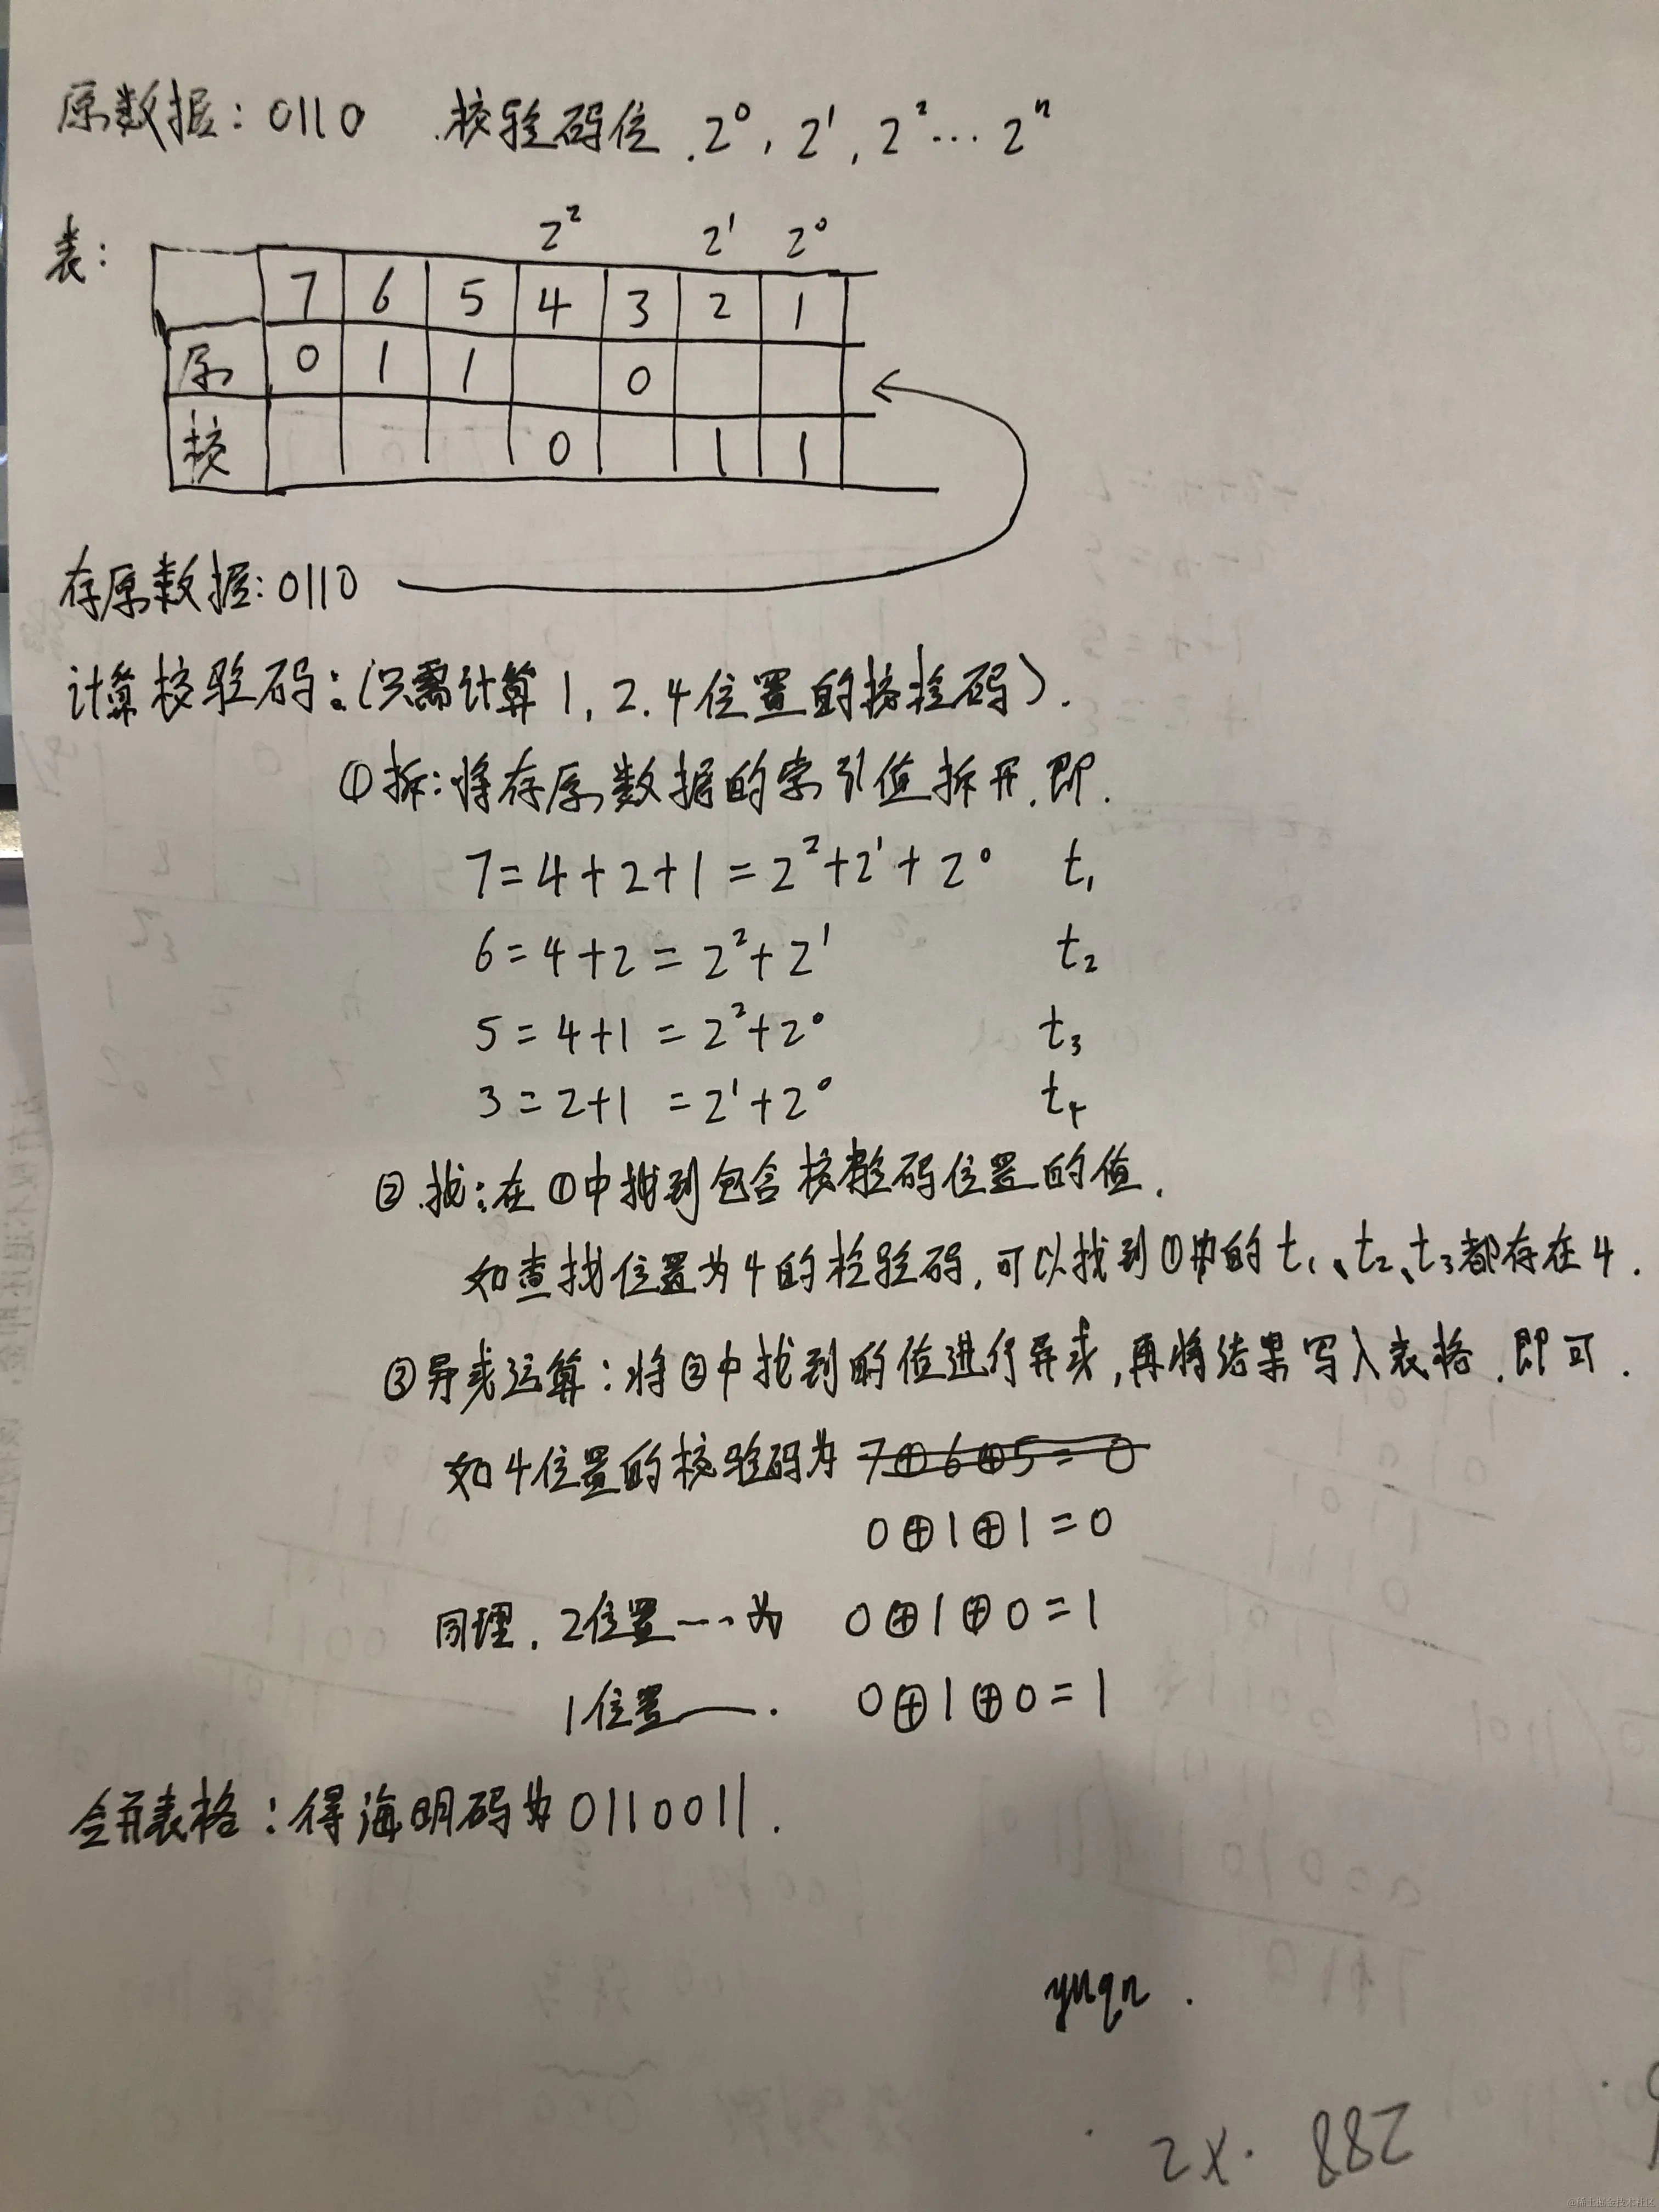 原数据:0110 校验码位.2⁰,2¹,2²…2ⁿ
表:
2² 2¹ 2⁰
7 6 5 4 3 2 1
原 0 1 1 0
校 0 1 1
存原数据:0110
计算校验码:(只需计算1,2.4位置的校验码).
①拆:将存原数据的索引值拆开.即.
7=4+2+1=2²+2¹+2⁰ t₁
6=4+2=2²+2¹ t₂
5=4+1=2²+2⁰ t₃
3=2+1=2¹+2⁰ t₄
②找:在①中找到包含校验码位置的值.
如查找位置为4的校验码,可以找到①中的t₁、t₂、t₃都存在4.
③异或运算:将②中找到的位进行异或,再将结果写入表格.即可.
如4位置的校验码为 7⊕6⊕5=0
0⊕1⊕1=0
同理.2位置……为 0⊕1⊕0=1
1位置——. 0⊕1⊕0=1
合并表格:得海明码为0110011.
yuqn.
@稀土掘金技术社区